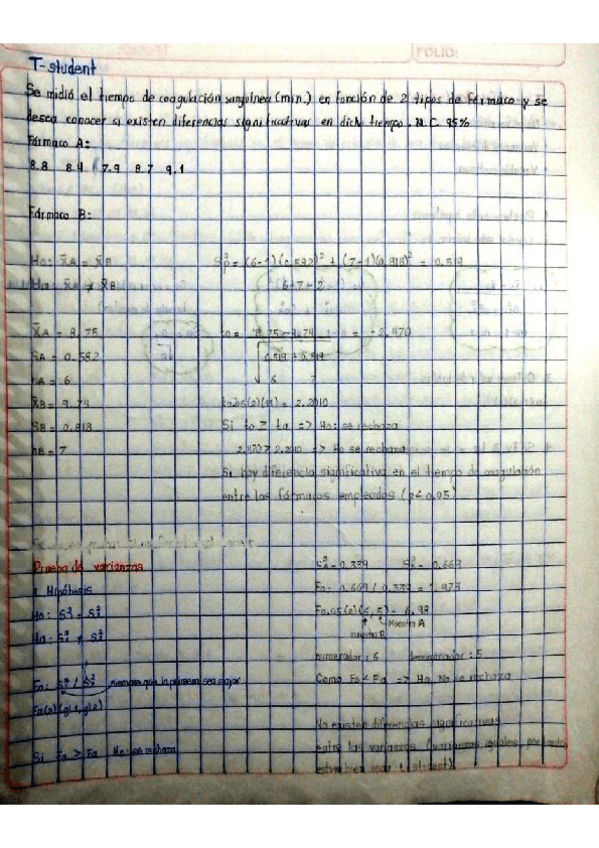 FOLIO:
T-student
Se midió el tiempo de coagulación sanguínea (min.) en función de 2 tipos de Fármaco y se
desea conocer si existen diferencias significativas en dicho tiempo. N.C. 95%
Fármaco A:
8.8 8.4 7.9 8.7 9.1
Fármaco B:
Ho: X̄A = X̄B
Ha: X̄A ≠ X̄B
X̄A = 8.75
SA = 0.582
nA = 6
X̄B = 9.74
SB = 0.818
nB = 7
S²p = (6-1)(0.582)² + (7-1)(0.818)² = 0.519
6+7-2
to = 8.75-9.74 = -2.470
√ 0.519 + 0.519
6 7
t0.05(2)(11) = 2.2010
Si to ≥ ta => Ho: se rechaza
2.470 > 2.2010 => Ho se rechaza
Si hay diferencia significativa en el tiempo de coagulación
entre los fármacos empleados (p<0.05)
Prueba de varianzas
1. Hipótesis
Ho: S²1 = S²2
Ha: S²1 ≠ S²2
Fo: S²1 / S²2 siempre que la primera sea mayor
Fa(2)(gl1, gl2)
Si Fo > Fa Ho: se rechaza
S²A = 0.339 S²B = 0.669
Fo = 0.669 / 0.339 = 1.973
F0.05(2)(6,5) = 6.98
Muestra A
muestra B
numerador: 6 denominador: 5
Como Fo < Fa => Ho. No se rechaza
No existen diferencias significativas
entre las varianzas (varianzas iguales, por tanto
estuvo bien usar t student).